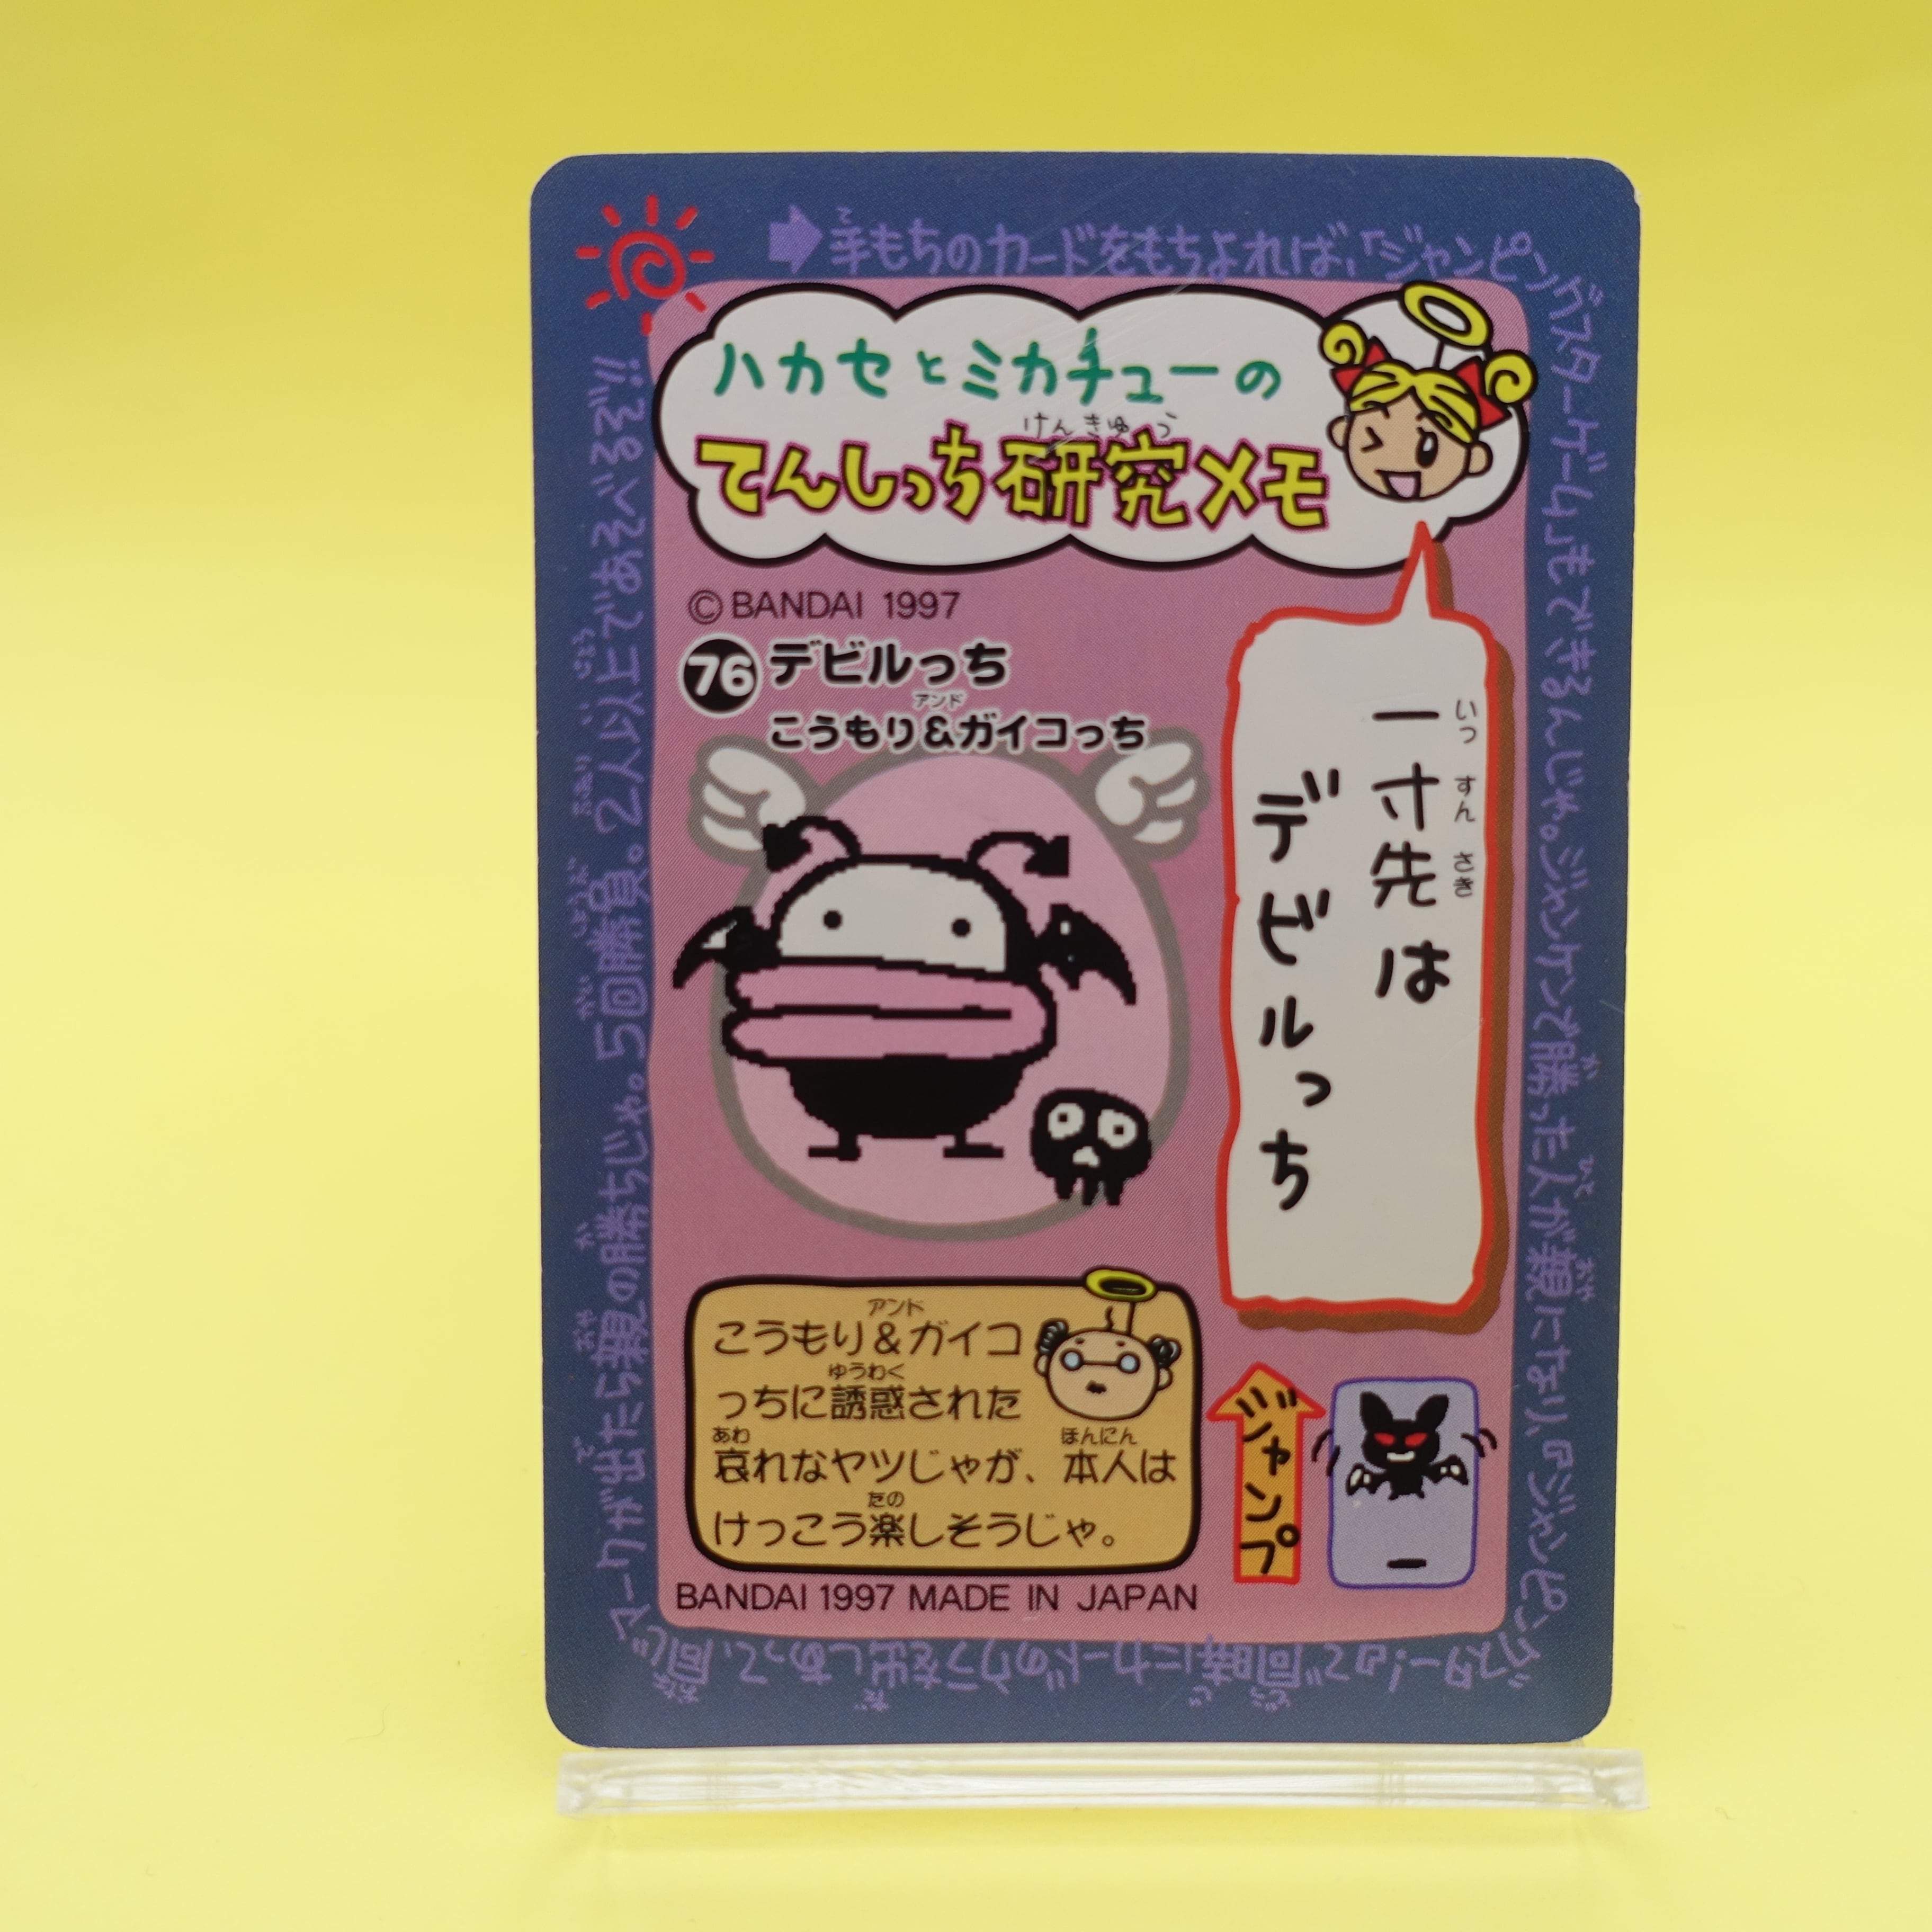 手もちのカードをもちよれば、「ジャンピングスターゲーム」もできるんじゃ。ジャンケンで勝った人が親になり、『ジャンピングスター!』で同時にカードのウラを出しあって、同じマークが出たら親の勝ちじゃ。5回勝負。2人以上であそべるぞ!!
ハカセとミカチューの
けんきゅう
てんしっち研究メモ
©BANDAI 1997
76 デビルっち
アンド
こうもり&ガイコっち
いっすんさき
一寸先は
デビルっち
アンド
こうもり&ガイコ
ゆうわく
っちに誘惑された
あわ ほんにん
哀れなヤツじゃが、本人は
たの
けっこう楽しそうじゃ。
ジャンプ
BANDAI 1997 MADE IN JAPAN